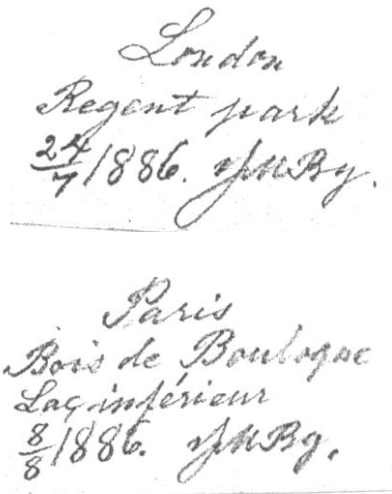 London
Regent park
24/7 1886.
Paris
Bois de Boulogne
Lac inférieur
8/8 1886.